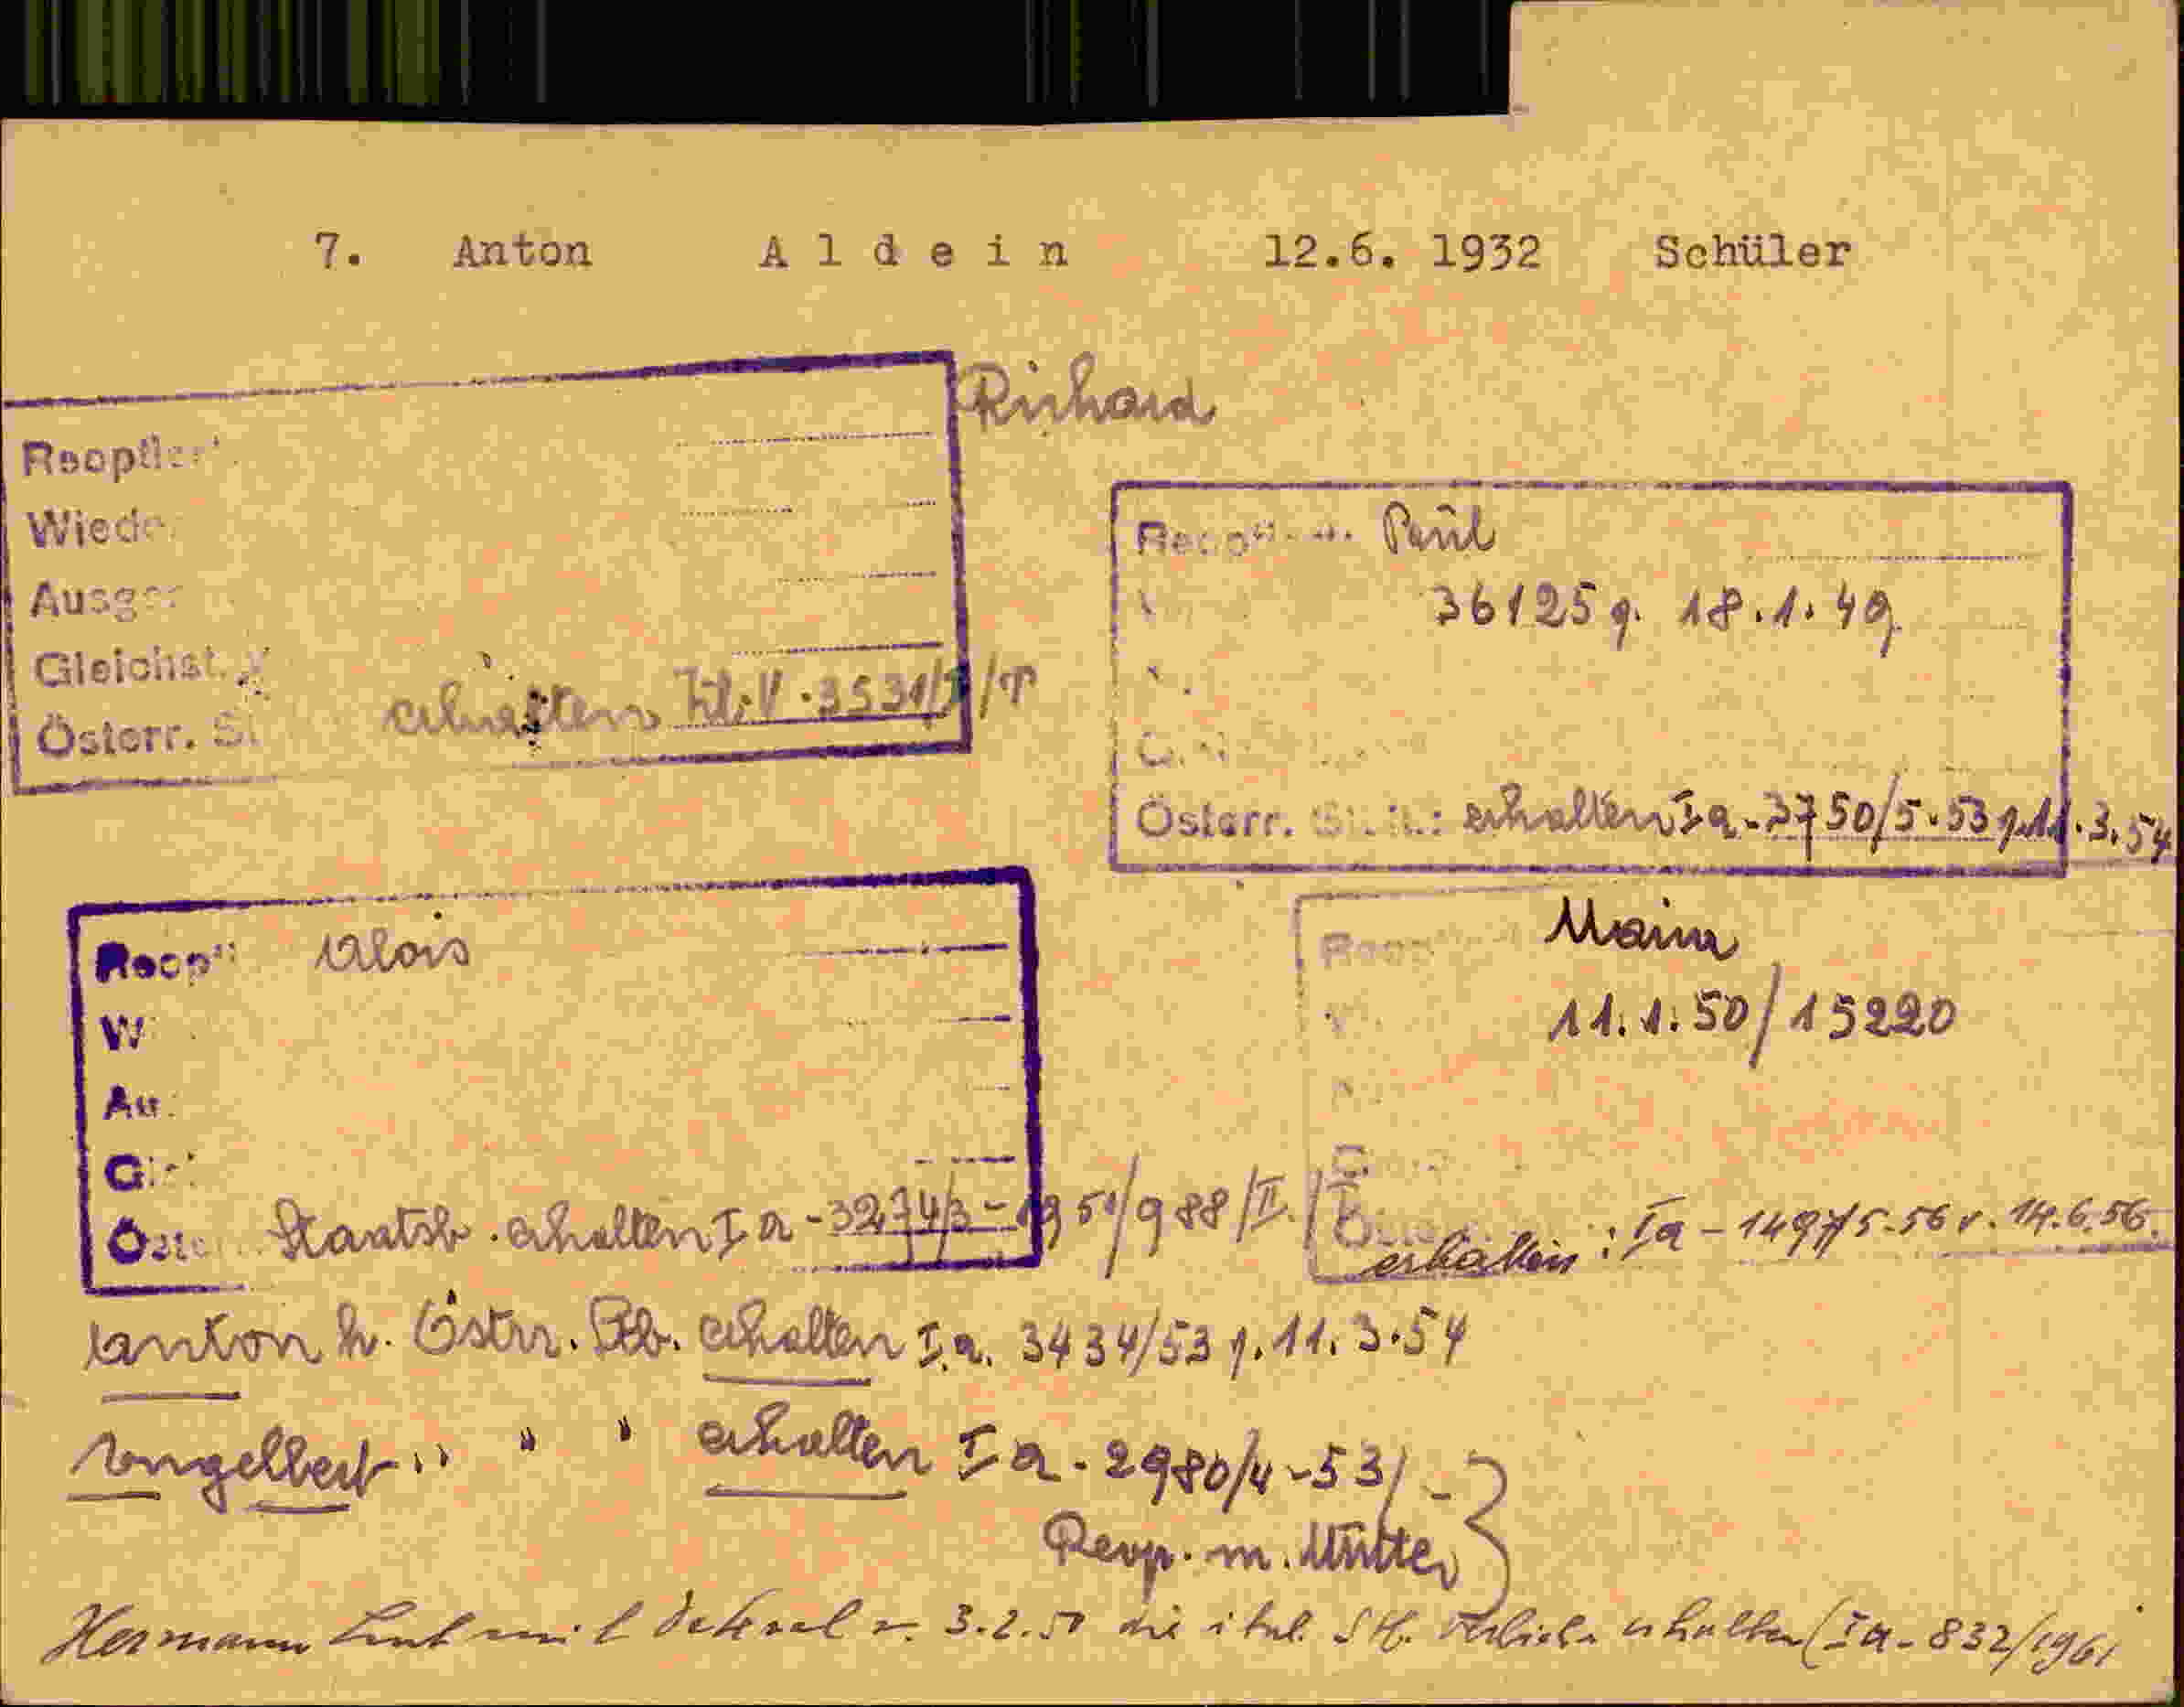 7. Anton Aldein 12.6. 1932 Schüler
Richard
Reoptiert
Wieder
Ausge
Gleichst.
Österr. St erhalten 3531/
Paul
36125 g. 18.1.49
Österr. St. B.: erhalten Ia-3750/5-53 g. 11.3.54
Reopt Alois
W
Au
Gl
Öste Staatsb. erhalten Ia-3274/3- 988/II.
Maria
11.1.50/15220
erhalten: Ia-1497/5-56 v. 14.6.56.
Anton h. Östrr. Stb. erhalten I.a. 3434/53 g. 11.3.54
Engelbert " " " erhalten Ia-2980/4-53/-
Reop. m. Mutter
Hermann hat mit Dekret v. 3.2.50 die ital. Stb. erhalten (Ia-832/1961